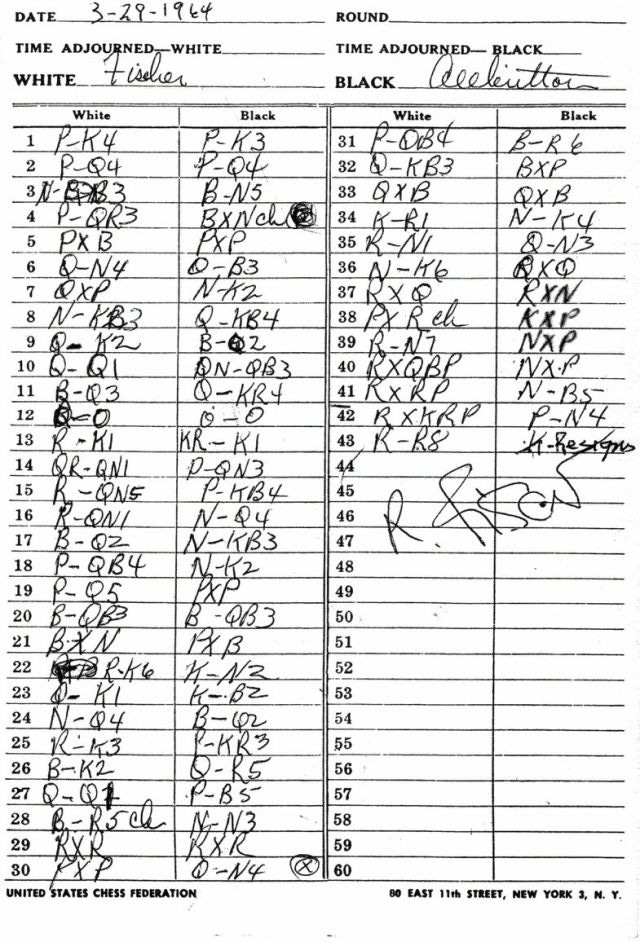 DATE 3-29-1964
ROUND
TIME ADJOURNED—WHITE
TIME ADJOURNED—BLACK
WHITE Fischer
BLACK
White Black
1 P-K4 P-K3
2 P-Q4 P-Q4
3 N-QB3 B-N5
4 P-QR3 BXNch
5 PXB PXP
6 Q-N4 Q-B3
7 QXP N-K2
8 N-KB3 Q-KB4
9 Q-K2 B-Q2
10 Q-Q1 QN-QB3
11 B-Q3 Q-KR4
12 O-O O-O
13 R-K1 KR-K1
14 QR-QN1 P-QN3
15 R-QN5 P-KB4
16 R-QN1 N-Q4
17 B-Q2 N-KB3
18 P-QB4 N-K2
19 P-Q5 PXP
20 B-QB3 B-QB3
21 BXN PXB
22 R-K6 K-N2
23 Q-K1 K-B2
24 N-Q4 B-Q2
25 R-K3 P-KR3
26 B-K2 Q-R5
27 Q-Q1 P-B5
28 B-R5ch N-N3
29 RXR RXR
30 PXP Q-N4 X
White Black
31 P-QB4 B-R6
32 Q-KB3 BXP
33 QXB QXB
34 K-R1 N-K4
35 R-N1 Q-N3
36 N-K6 RXQ
37 RXQ RXN
38 PXRch KXP
39 R-N7 NXP
40 RXQBP NXP
41 RXRP N-B5
42 RXKRP P-N4
43 R-R8 K-Resigns
44
45
46
47
48
49
50
51
52
53
54
55
56
57
58
59
60
UNITED STATES CHESS FEDERATION
80 EAST 11th STREET, NEW YORK 3, N. Y.